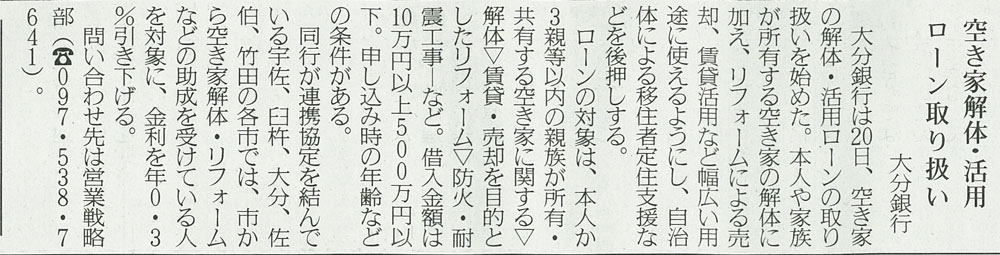 空き家解体・活用
ローン取り扱い
大分銀行
大分銀行は20日、空き家
の解体・活用ローンの取り
扱いを始めた。本人や家族
が所有する空き家の解体に
加え、リフォームによる売
却、賃貸活用など幅広い用
途に使えるようにし、自治
体による移住者定住支援な
どを後押しする。
ローンの対象は、本人か
3親等以内の親族が所有・
共有する空き家に関する▽
解体▽賃貸・売却を目的と
したリフォーム▽防火・耐
震工事―など。借入金額は
10万円以上500万円以
下。申し込み時の年齢など
の条件がある。
同行が連携協定を結んで
いる宇佐、臼杵、大分、佐
伯、竹田の各市では、市か
ら空き家解体・リフォーム
などの助成を受けている人
を対象に、金利を年0・3
%引き下げる。
問い合わせ先は営業戦略
部(☎097・538・7
641)。